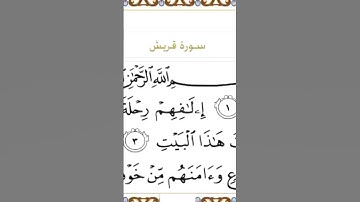 سورة قريش
ـسـمِ ٱللَّهِ ٱلرَّحۡمَٰنِ
١ إِۦلَٰفِهِمۡ رِحۡلَةَ
هَٰذَا ٱلۡبَيۡتِ ٣
وَءَامَنَهُم مِّنۡ خَوۡفِ